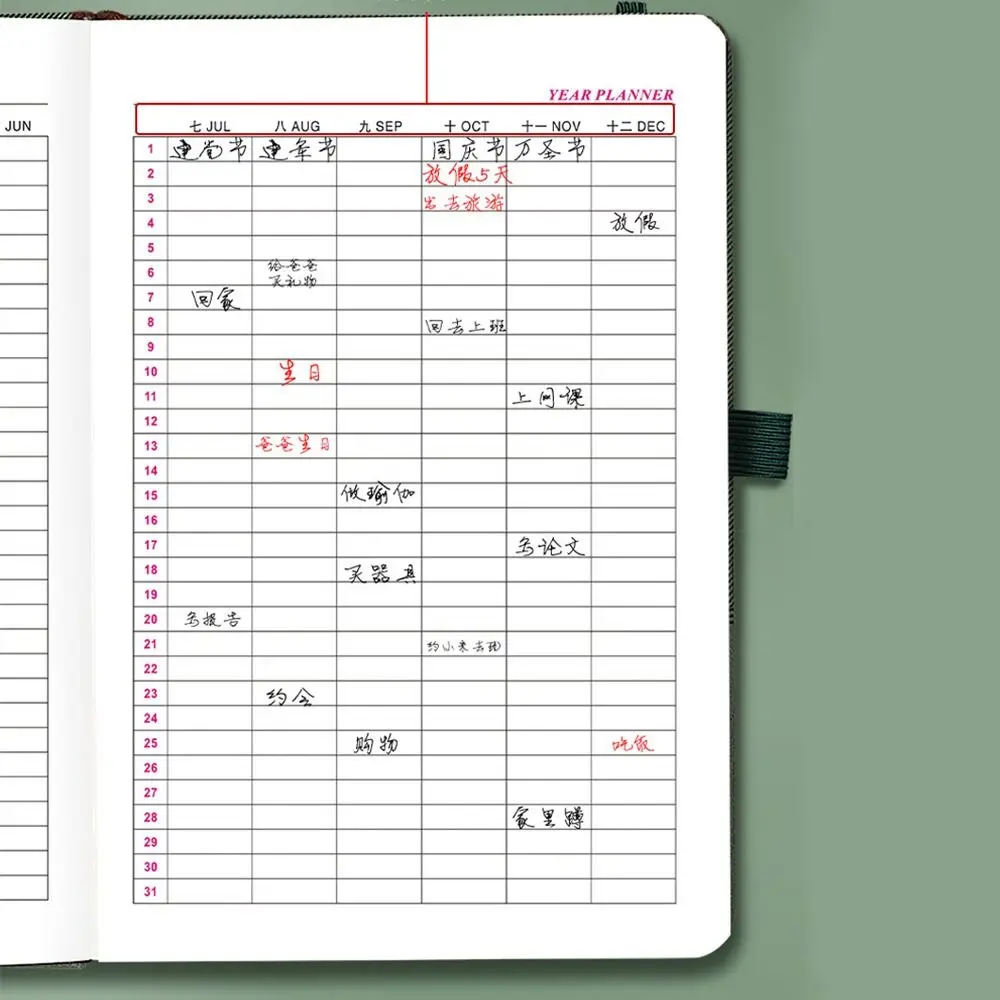 YEAR PLANNER
JUN
七 JUL 八 AUG 九 SEP 十 OCT 十一 NOV 十二 DEC
1 建党节 建军节 国庆节 万圣节
2 放假5天
3 出去旅游
4 放假
5
6 给爸爸
买礼物
7 回家
8 回去上班
9
10 生日
11 上网课
12
13 爸爸生日
14
15 做瑜伽
16
17 写论文
18 买器具
19
20 写报告
21 约小米去玩
22
23 约会
24
25 购物 吃饭
26
27
28 家里蹲
29
30
31